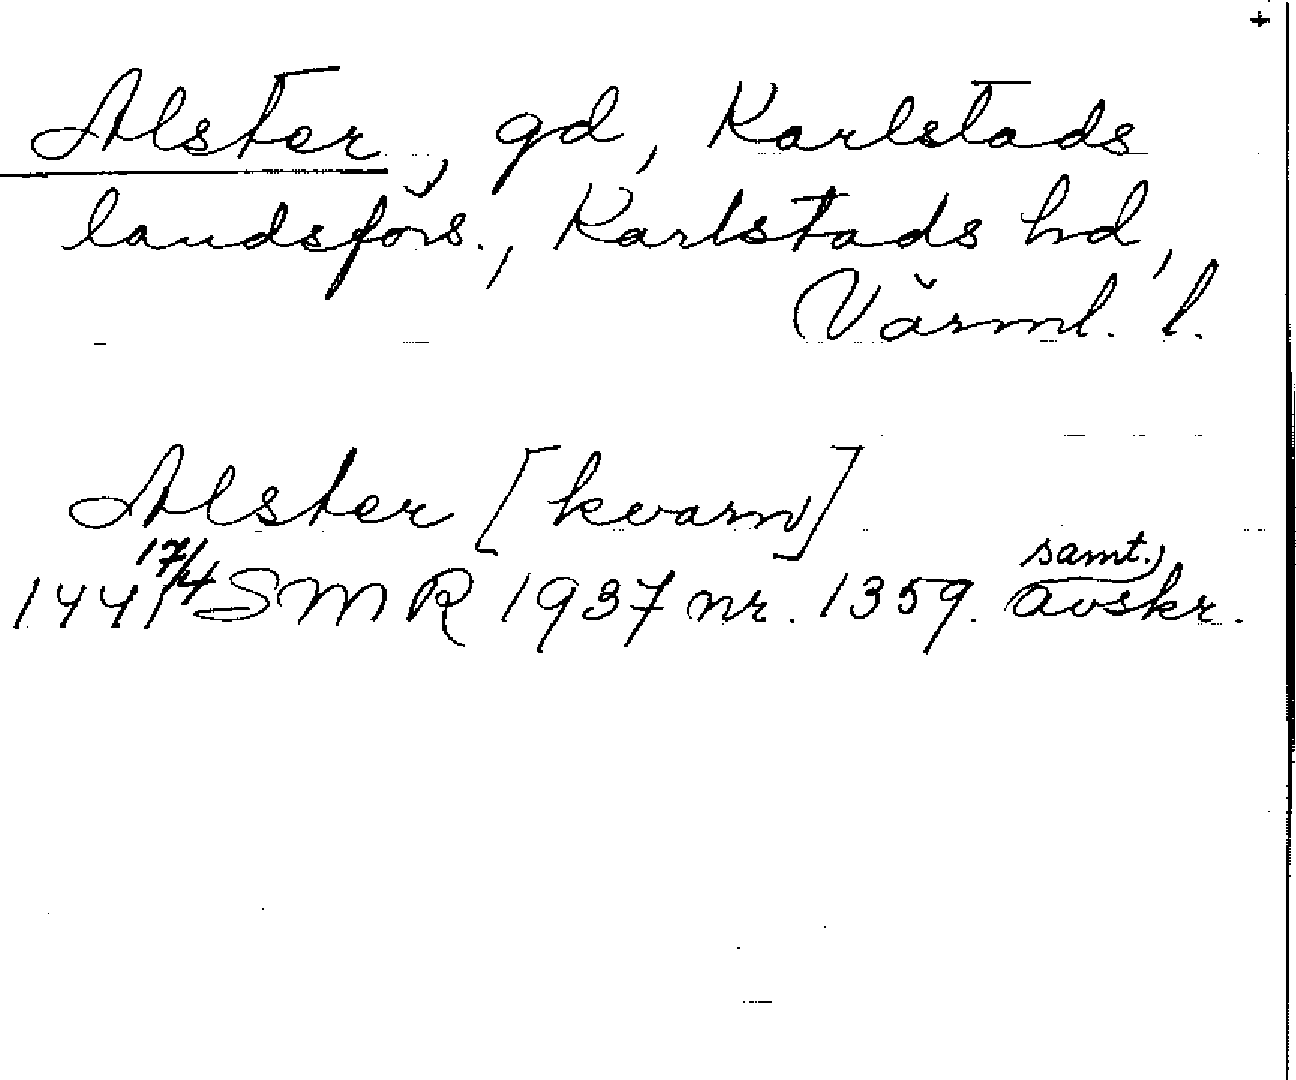 +
Alster, gd, Karlstads
landsförs., Karlstads hd,
Värml. l.
Alster [kvarn]
1441 17/4 SMR 1937 nr. 1359. samt. avskr.